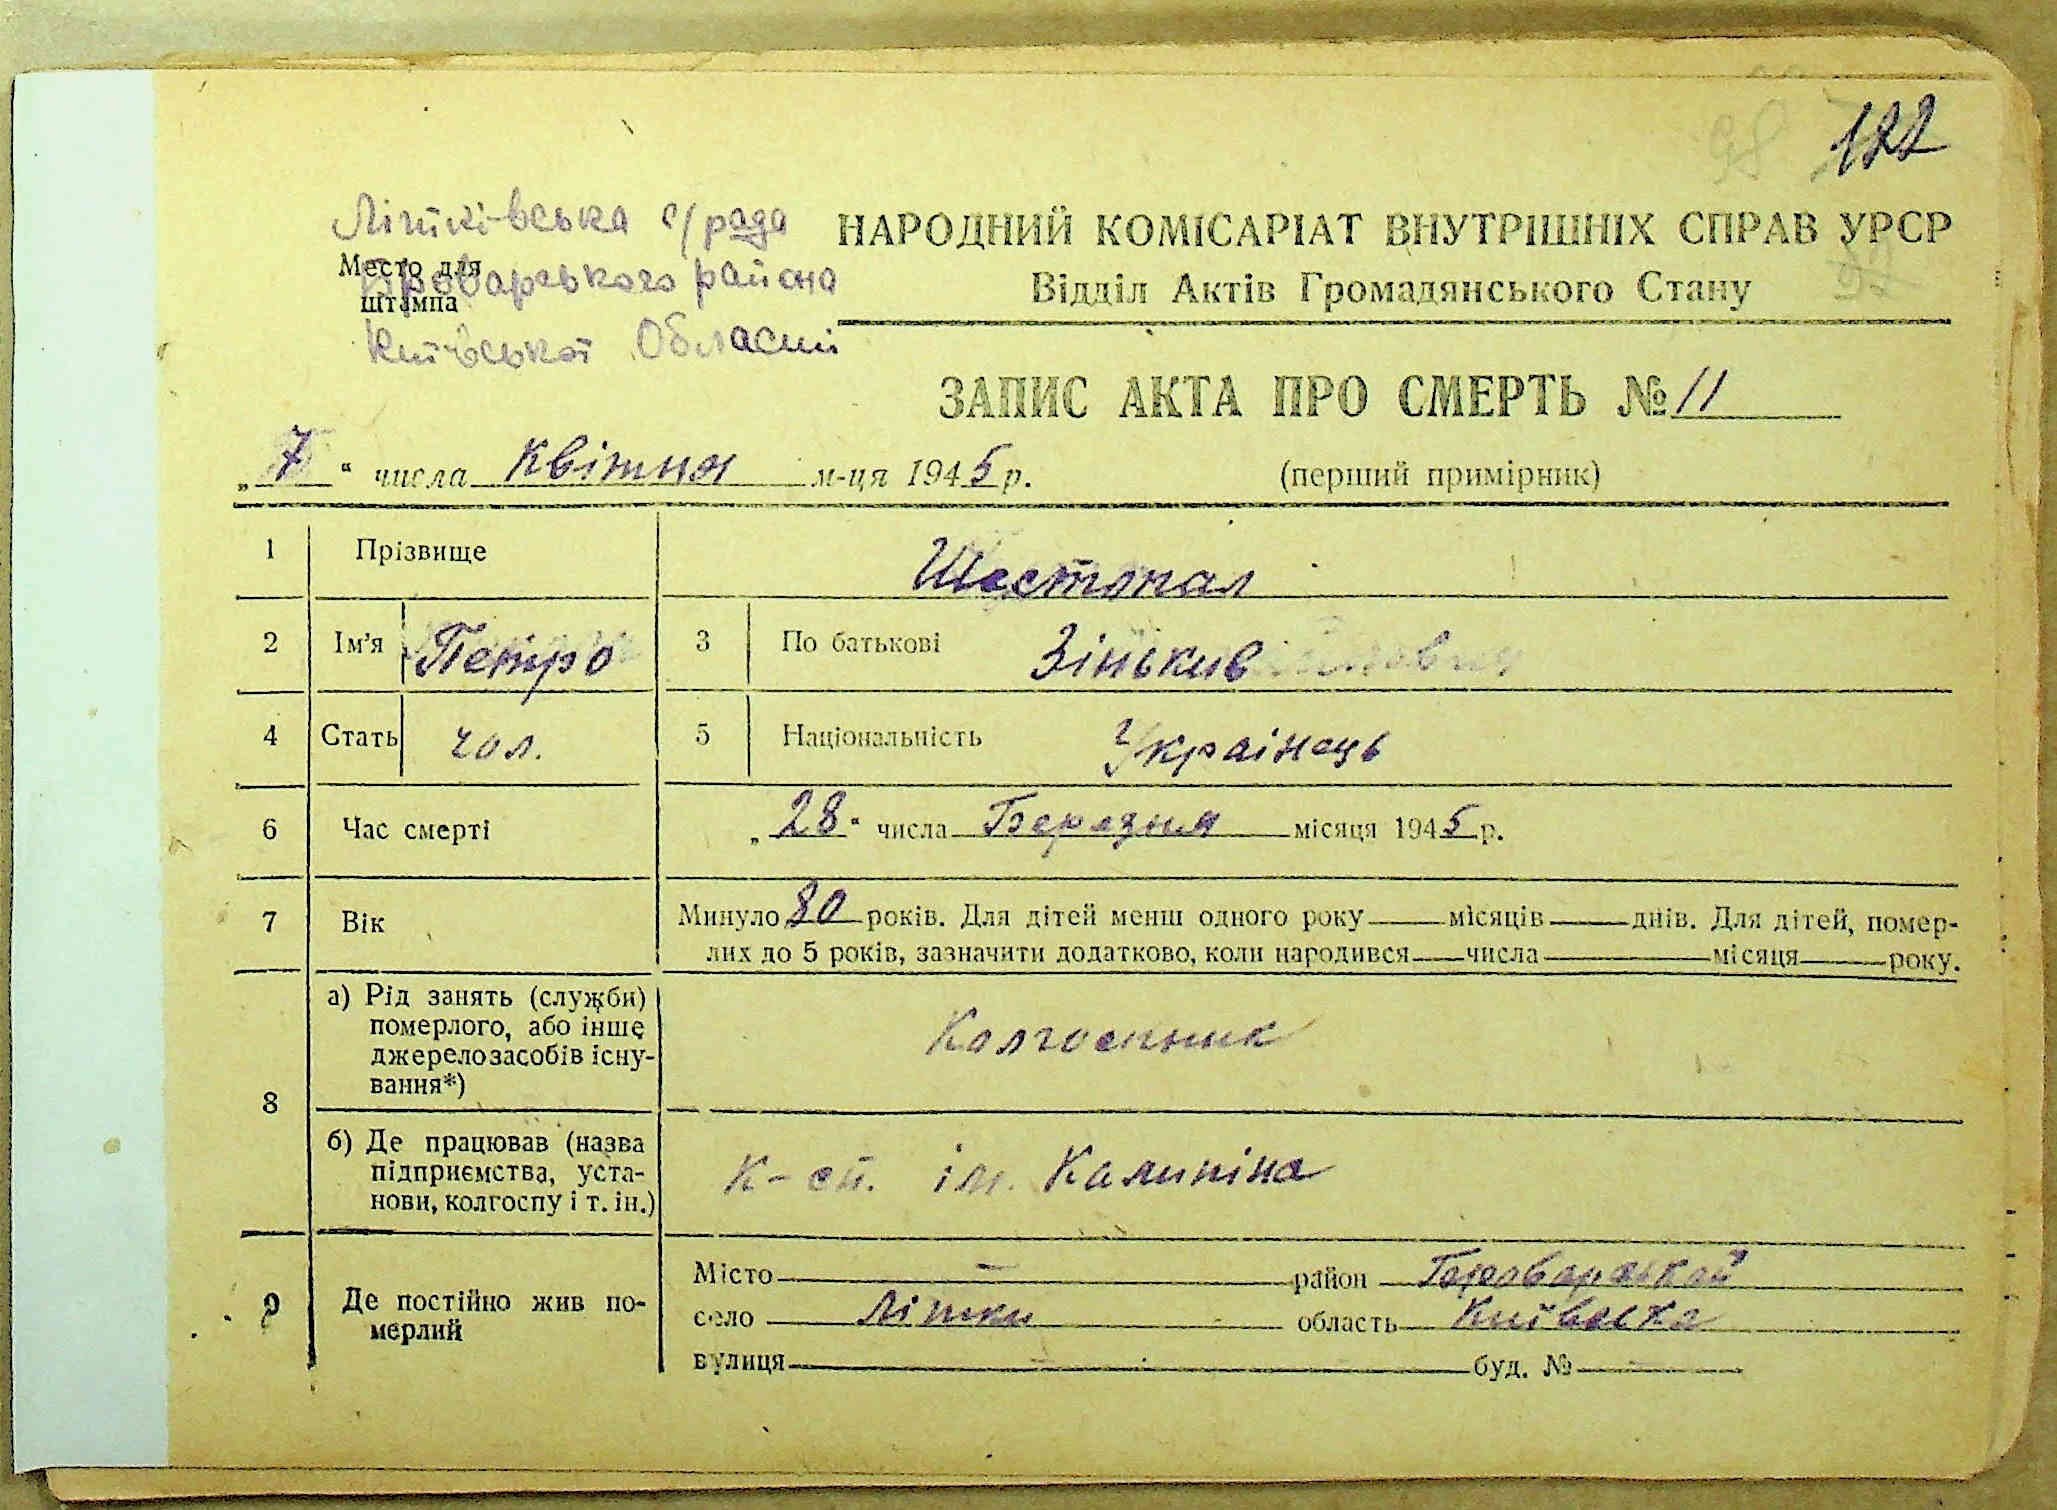 122
98
Літківська с/рада
Место для
Броварського района
штампа
Київської Області
НАРОДНИЙ КОМІСАРІАТ ВНУТРІШНІХ СПРАВ УРСР
Відділ Актів Громадянського Стану
ЗАПИС АКТА ПРО СМЕРТЬ № 11
„ 7 “ числа Квітня м-ця 1945 р. (перший примірник)
1 Прізвище Шестопал
2 Ім’я Петро 3 По батькові Зінькив
4 Стать чол. 5 Національність Українець
6 Час смерті „ 28 “ числа Березня місяця 1945 р.
7 Вік Минуло 80 років. Для дітей менш одного року місяців днів. Для дітей, помер-
лих до 5 років, зазначити додатково, коли народився числа місяця року.
8 а) Рід занять (служби)
померлого, або інше
джерело засобів існу-
вання*)
Колгоспник
б) Де працював (назва
підприємства, уста-
нови, колгоспу і т. ін.)
К-сп. ім. Калиніна
9 Де постійно жив по-
мерлий
Місто — район Броварський
село Літки область Київська
вулиця — буд. № —